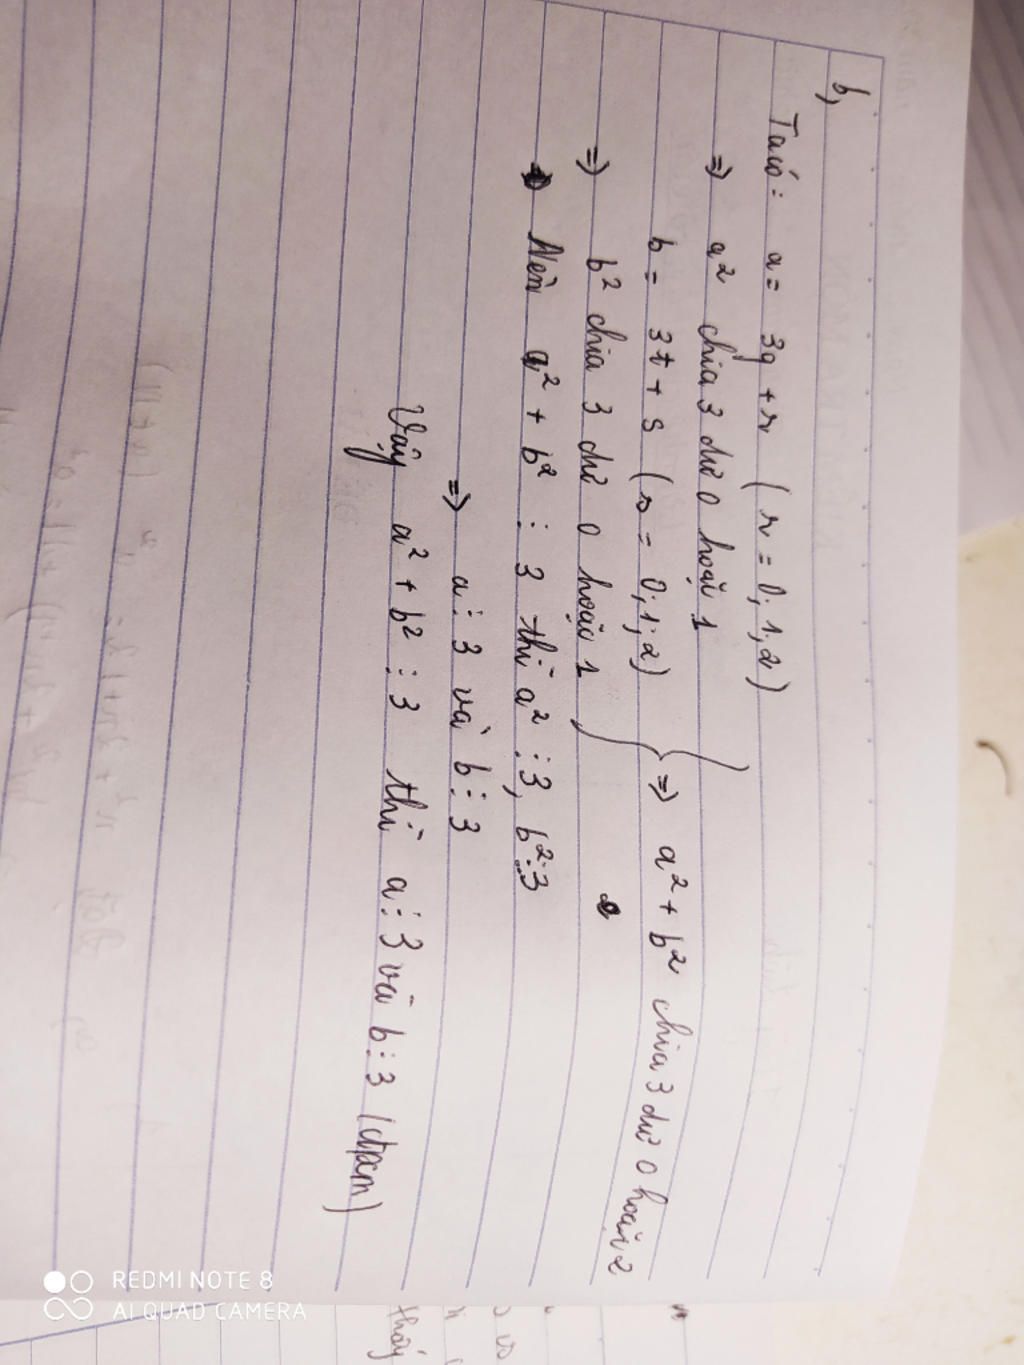 b,
Ta có: a = 3q + r ( r = 0; 1; 2)
=> a² chia 3 dư 0 hoặc 1
b = 3t + s ( s = 0; 1; 2)
=> a² + b² chia 3 dư 0 hoặc 2
=> b² chia 3 dư 0 hoặc 1
Nên a² + b² ⋮ 3 thì a² ⋮ 3, b² ⋮ 3
=> a ⋮ 3 và b ⋮ 3
Vậy a² + b² ⋮ 3 thì a ⋮ 3 và b ⋮ 3 (đpcm)
REDMI NOTE 8
AI QUAD CAMERA